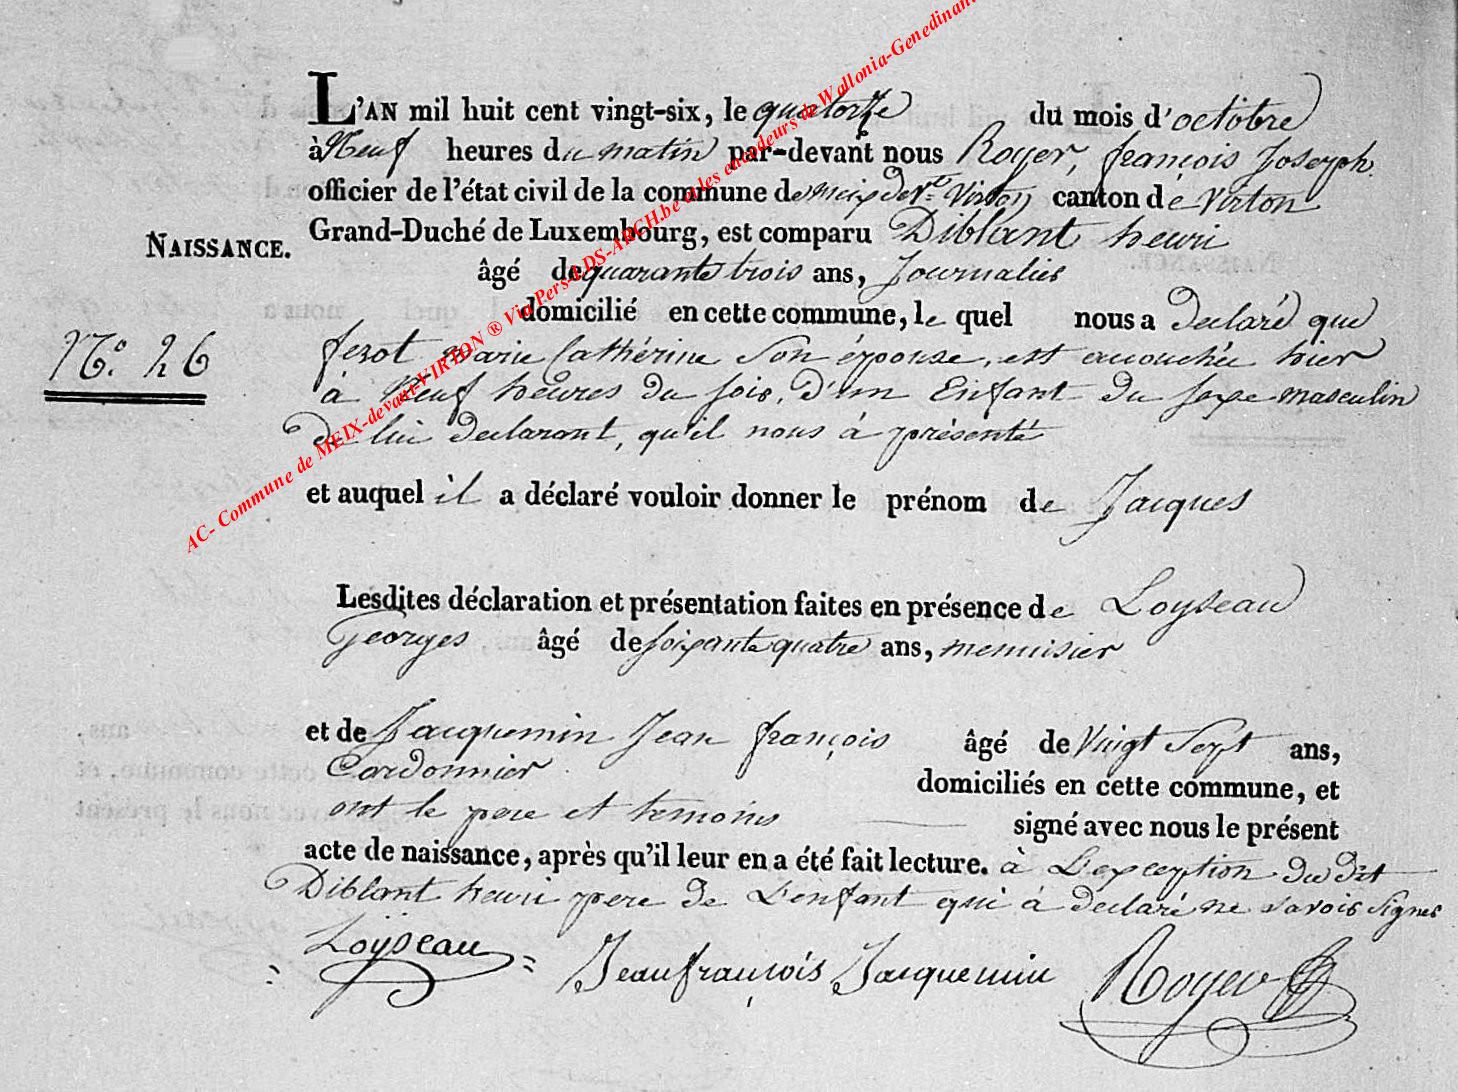 L'AN mil huit cent vingt-six, le quatorze du mois d'octobre
à Neuf heures du matin par-devant nous Royer, françois Joseph
officier de l'état civil de la commune de meix devt. Virton canton de Virton
Grand-Duché de Luxembourg, est comparu Diblant henri
NAISSANCE.
âgé de quarante trois ans, Journalier
domicilié en cette commune, le quel nous a declaré que
N.° 26
ferot marie Cathérine Son épouse, est accouchée hier
à Neuf heures du soir, d'un Enfant du sexe masculin
de lui declarant, qu'il nous à présenté
et auquel il a déclaré vouloir donner le prénom de Jacques
Lesdites déclaration et présentation faites en présence de Loyseau
Georges âgé de soixante quatre ans, menuisier
et de Jacquemin Jean françois âgé de Vingt Sept ans,
Cordonnier domiciliés en cette commune, et
ont le pere et temoins signé avec nous le présent
acte de naissance, après qu'il leur en a été fait lecture. à L'exception du dit
Diblant henri pere de L'enfant qui à declaré ne savoir signer
Loÿseau Jean françois Jacquemin Royer
AC- Commune de MEIX-devant-VIRTON ® Via Pers-LDS-ARCH.be et les encodeurs de Wallonia-Genedinant